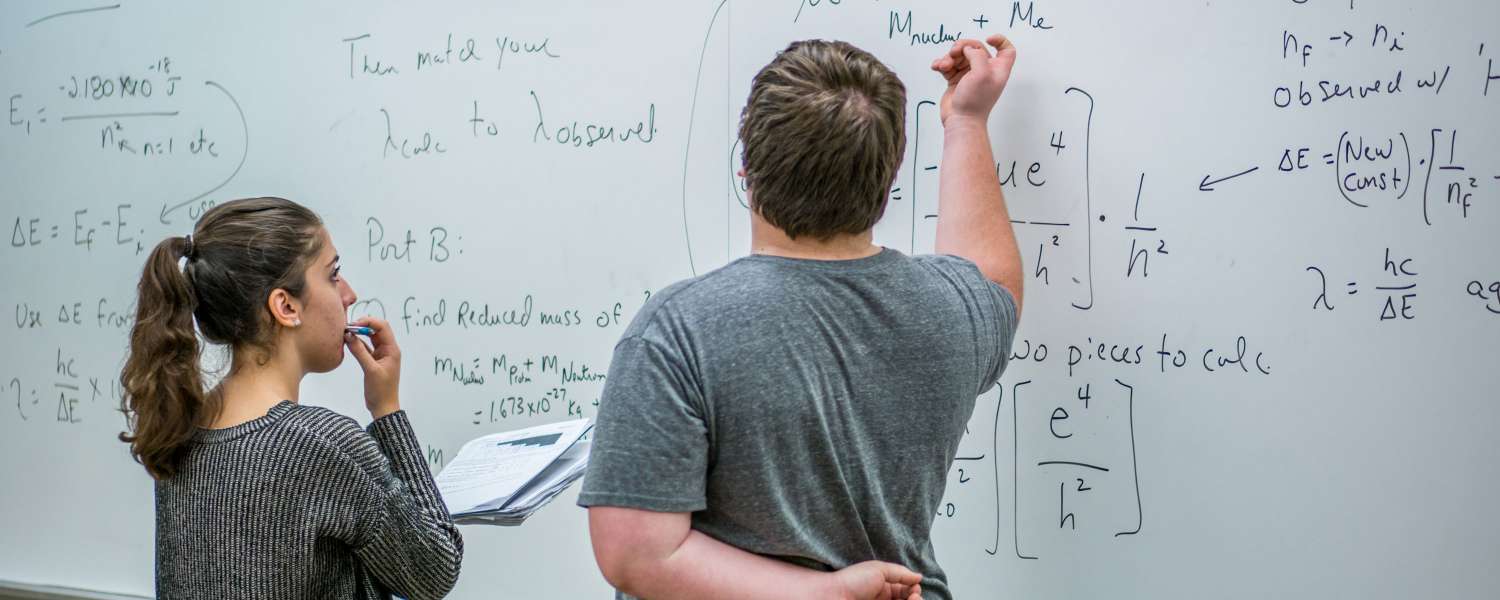 -2.180 x10^-18 J
E_i =
n^2 n=1 etc
use
ΔE = E_f - E_i
Use ΔE from
λ = hc/ΔE x 10
Then match your
λcalc to λobserved.
Part B:
① find Reduced mass of
m_Nucleus = M_Proton + M_Neutron
= 1.673x10^-27 kg +
m
M_nucleus + M_e
= [ - μe^4 / h^2 ] · 1/n^2
two pieces to calc.
[ e^4 / h^2 ]
n_f -> n_i
observed w/ 'H
← ΔE = (New Const) · [ 1/n_f^2 -
λ = hc/ΔE ag